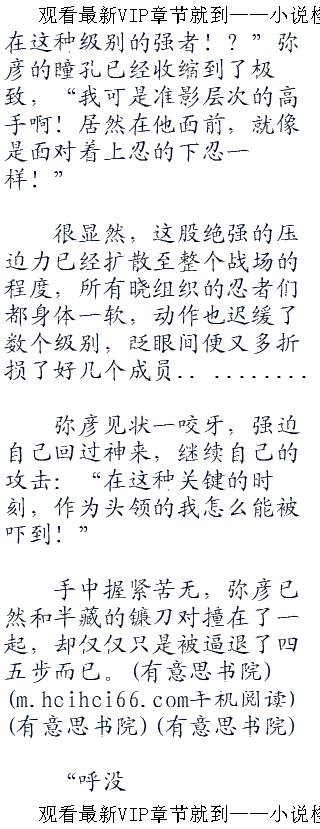 观看最新VIP章节就到——小说检
在这种级别的强者！？”弥
彦的瞳孔已经收缩到了极
致，“我可是准影层次的高
手啊！居然在他面前，就像
是面对着上忍的下忍一
样！”
很显然，这股绝强的压
迫力已经扩散至整个战场的
程度，所有晓组织的忍者们
都身体一软，动作也迟缓了
数个级别，眨眼间便又多折
损了好几个成员.. .........
弥彦见状一咬牙，强迫
自己回过神来，继续自己的
攻击：“在这种关键的时
刻，作为头领的我怎么能被
吓到！”
手中握紧苦无，弥彦已
然和半藏的镰刀对撞在了一
起，却仅仅只是被逼退了四
五步而已。(有意思书院)
(m.hcihci66.com手机阅读)
(有意思书院)(有意思书院)
“呼没
观看最新VIP章节就到——小说检